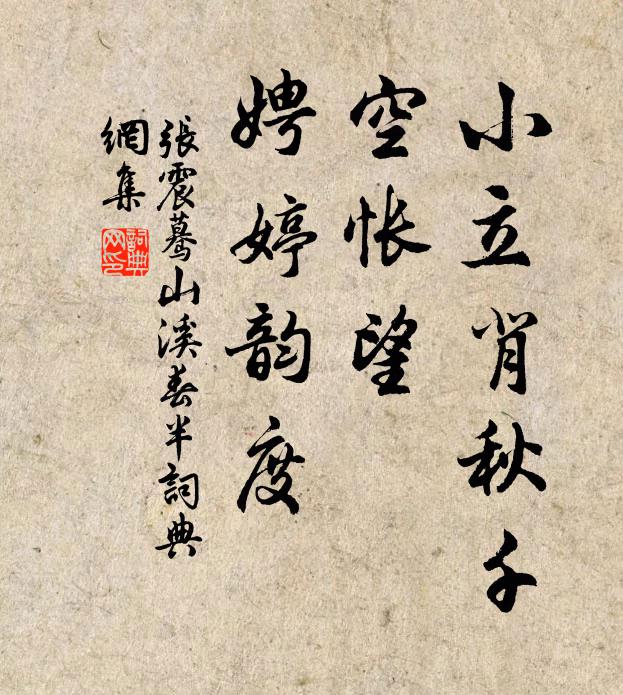 小立肖秋千
空怅望
娉婷韵度
張震蓦山溪春半詞典
網集
詞典
网印